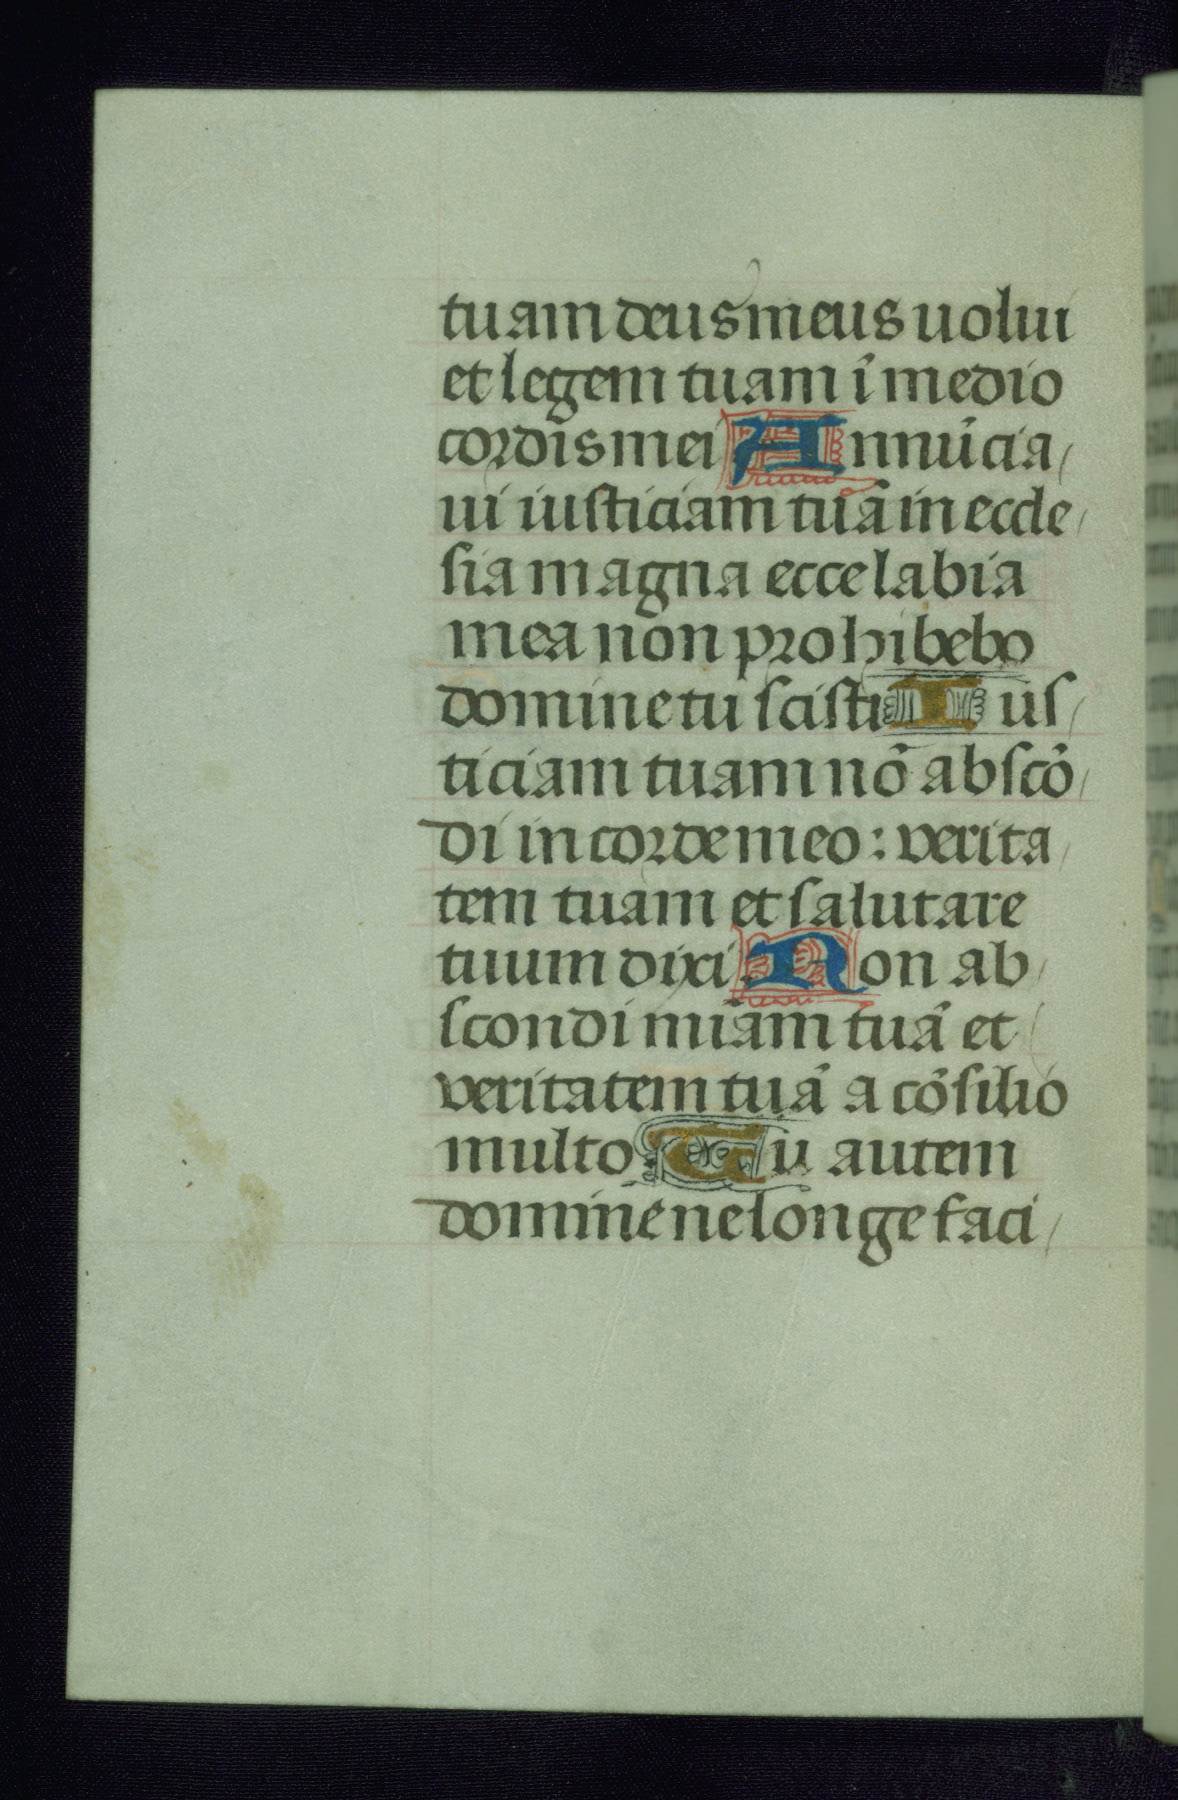 tuam deus meus uolui
et legem tuam ī medio
cordis mei Annūcia/
ui iusticiam tuā in eccle/
sia magna ecce labia
mea non prohibebo
domine tu scisti Ius/
ticiam tuam nō abscō/
di in corde meo: verita/
tem tuam et salutare
tuum dixi. Non ab/
scondi miām tuā et/
veritatem tuā a cōsilio
multo. Tu autem
domine ne longe faci/